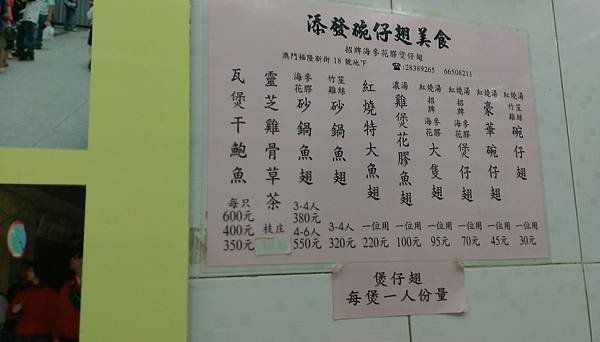 添發碗仔翅美食
招牌海參花膠煲仔翅
澳門福隆新街 18 號地下
☎:28389265 66508211
紅燒湯 竹笙雞絲 碗仔翅 30元
紅燒湯 招牌 豪華碗仔翅 45元
紅燒湯 招牌 海參花膠 煲仔翅 一位用 70元
紅燒湯 招牌 海參花膠 大隻翅 一位用 95元
濃湯 雞煲花膠魚翅 一位用 100元
紅燒特大魚翅 一位用 220元
竹笙雞絲 砂鍋魚翅 3-4人 320元
海參花膠 砂鍋魚翅 3-4人 380元 4-6人 550元
靈芝雞骨草茶 枝庄
瓦煲干鮑魚 每只 600元 400元 350元
煲仔翅
每煲一人份量